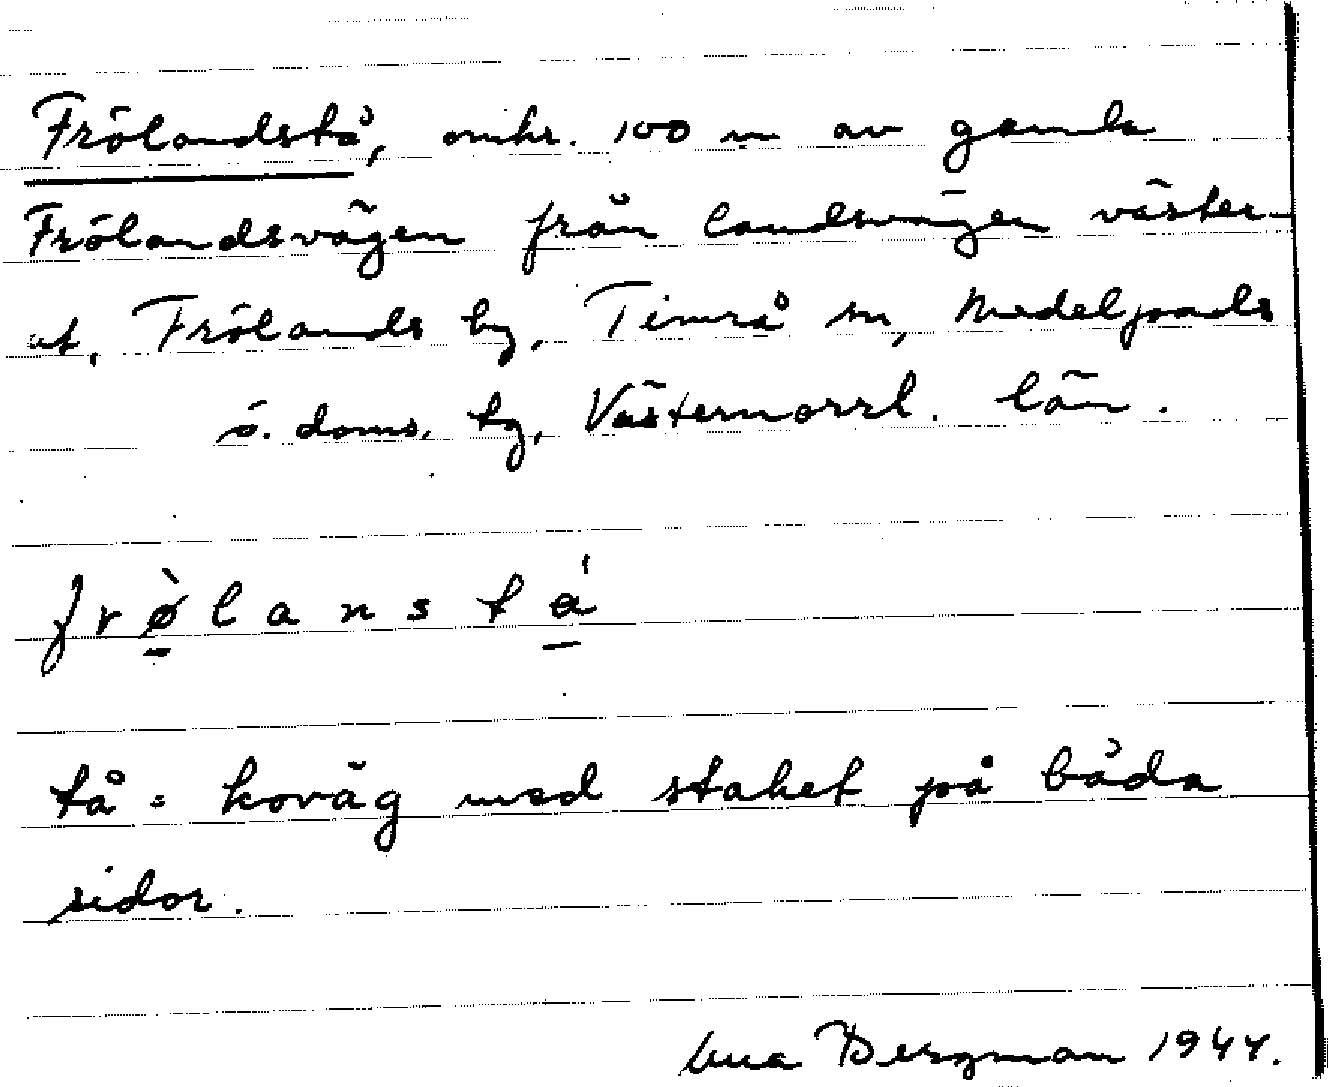 Frölandstå, omkr. 100 m av gamla
Frölandsvägen från landsvägen väster-
ut, Frölands by, Timrå sn, Medelpads
ö. doms. tg, Västernorrl. län.
frø̀lanstá
tå = koväg med staket på båda
sidor.
Bergman 1944.